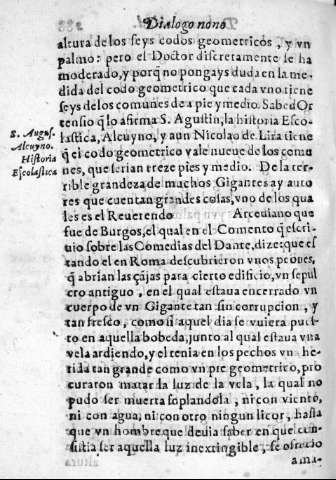 Dialogo nono
altura de los seys codos geometricos, y vn
palmo: pero el Doctor discretamente le ha
moderado, y porq̃ no pongays duda en la me-
dida del codo geometrico que cada vno tiene
seys de los comunes de a pie y medio. Sabed Or
tensio q̃ lo afirma S. Agustin, la historia Esco-
lastica, Alcuyno, y aun Nicolao de Lira tiene
q̃ el codo geometrico vale nueue de los comu
nes, que serian treze pies y medio. De la ter-
rible grandeza de muchos Gigantes ay auto
res que cuentan grandes cosas, vno de los qua
les es el Reuerendo Arcediano que
fue de Burgos, el qual en el Comento q̃ escri-
uio sobre las Comedias del Dante, dize: que es
tando el en Roma descubrieron vnos peones,
q̃ abrian las çãjas para cierto edificio, vn sepul
cro antiguo, en el qual estaua encerrado vn
cuerpo de vn Gigante tan sin corrupcion, y
tan fresco, como si aquel dia se vuiera pues-
to en aquella bobeda, junto al qual estaua vna
vela ardiendo, y el tenia en los pechos vn he-
rida tan grande como vn pie geometrico, pro
curaron matar la luz de la vela, la qual no
pudo ser muerta soplandola, ni con viento,
ni con agua, ni con otro ningun licor, hasta
que vn hombre que deuia saber en que con-
sistia ser aquella luz inextinglible, se ofrecio
a ma-
S. Augus.
Alcuyno.
Historia
Escolastica